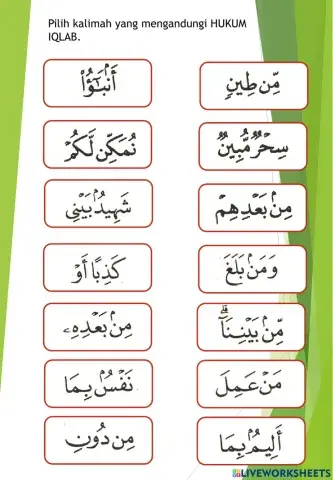 Pilih kalimah yang mengandungi HUKUM
IQLAB.
أَنۢبَٰٓؤُا۟
مِّن طِينٍ
نُمَكِّن لَّكُمْ
سِحْرٌ مُّبِينٌ
شَهِيدٌۢ بَيْنِى
مِنۢ بَعْدِهِمْ
كَذِبًا أَوْ
وَمَنۢ بَلَغَ
مِنۢ بَعْدِهِۦ
مِّنۢ بَيْنِنَآ ۗ
نَفْسٌۢ بِمَا
مَنْ عَمِلَ
مِن دُونِ
أَلِيمٌۢ بِمَا
LIVEWORKSHEETS